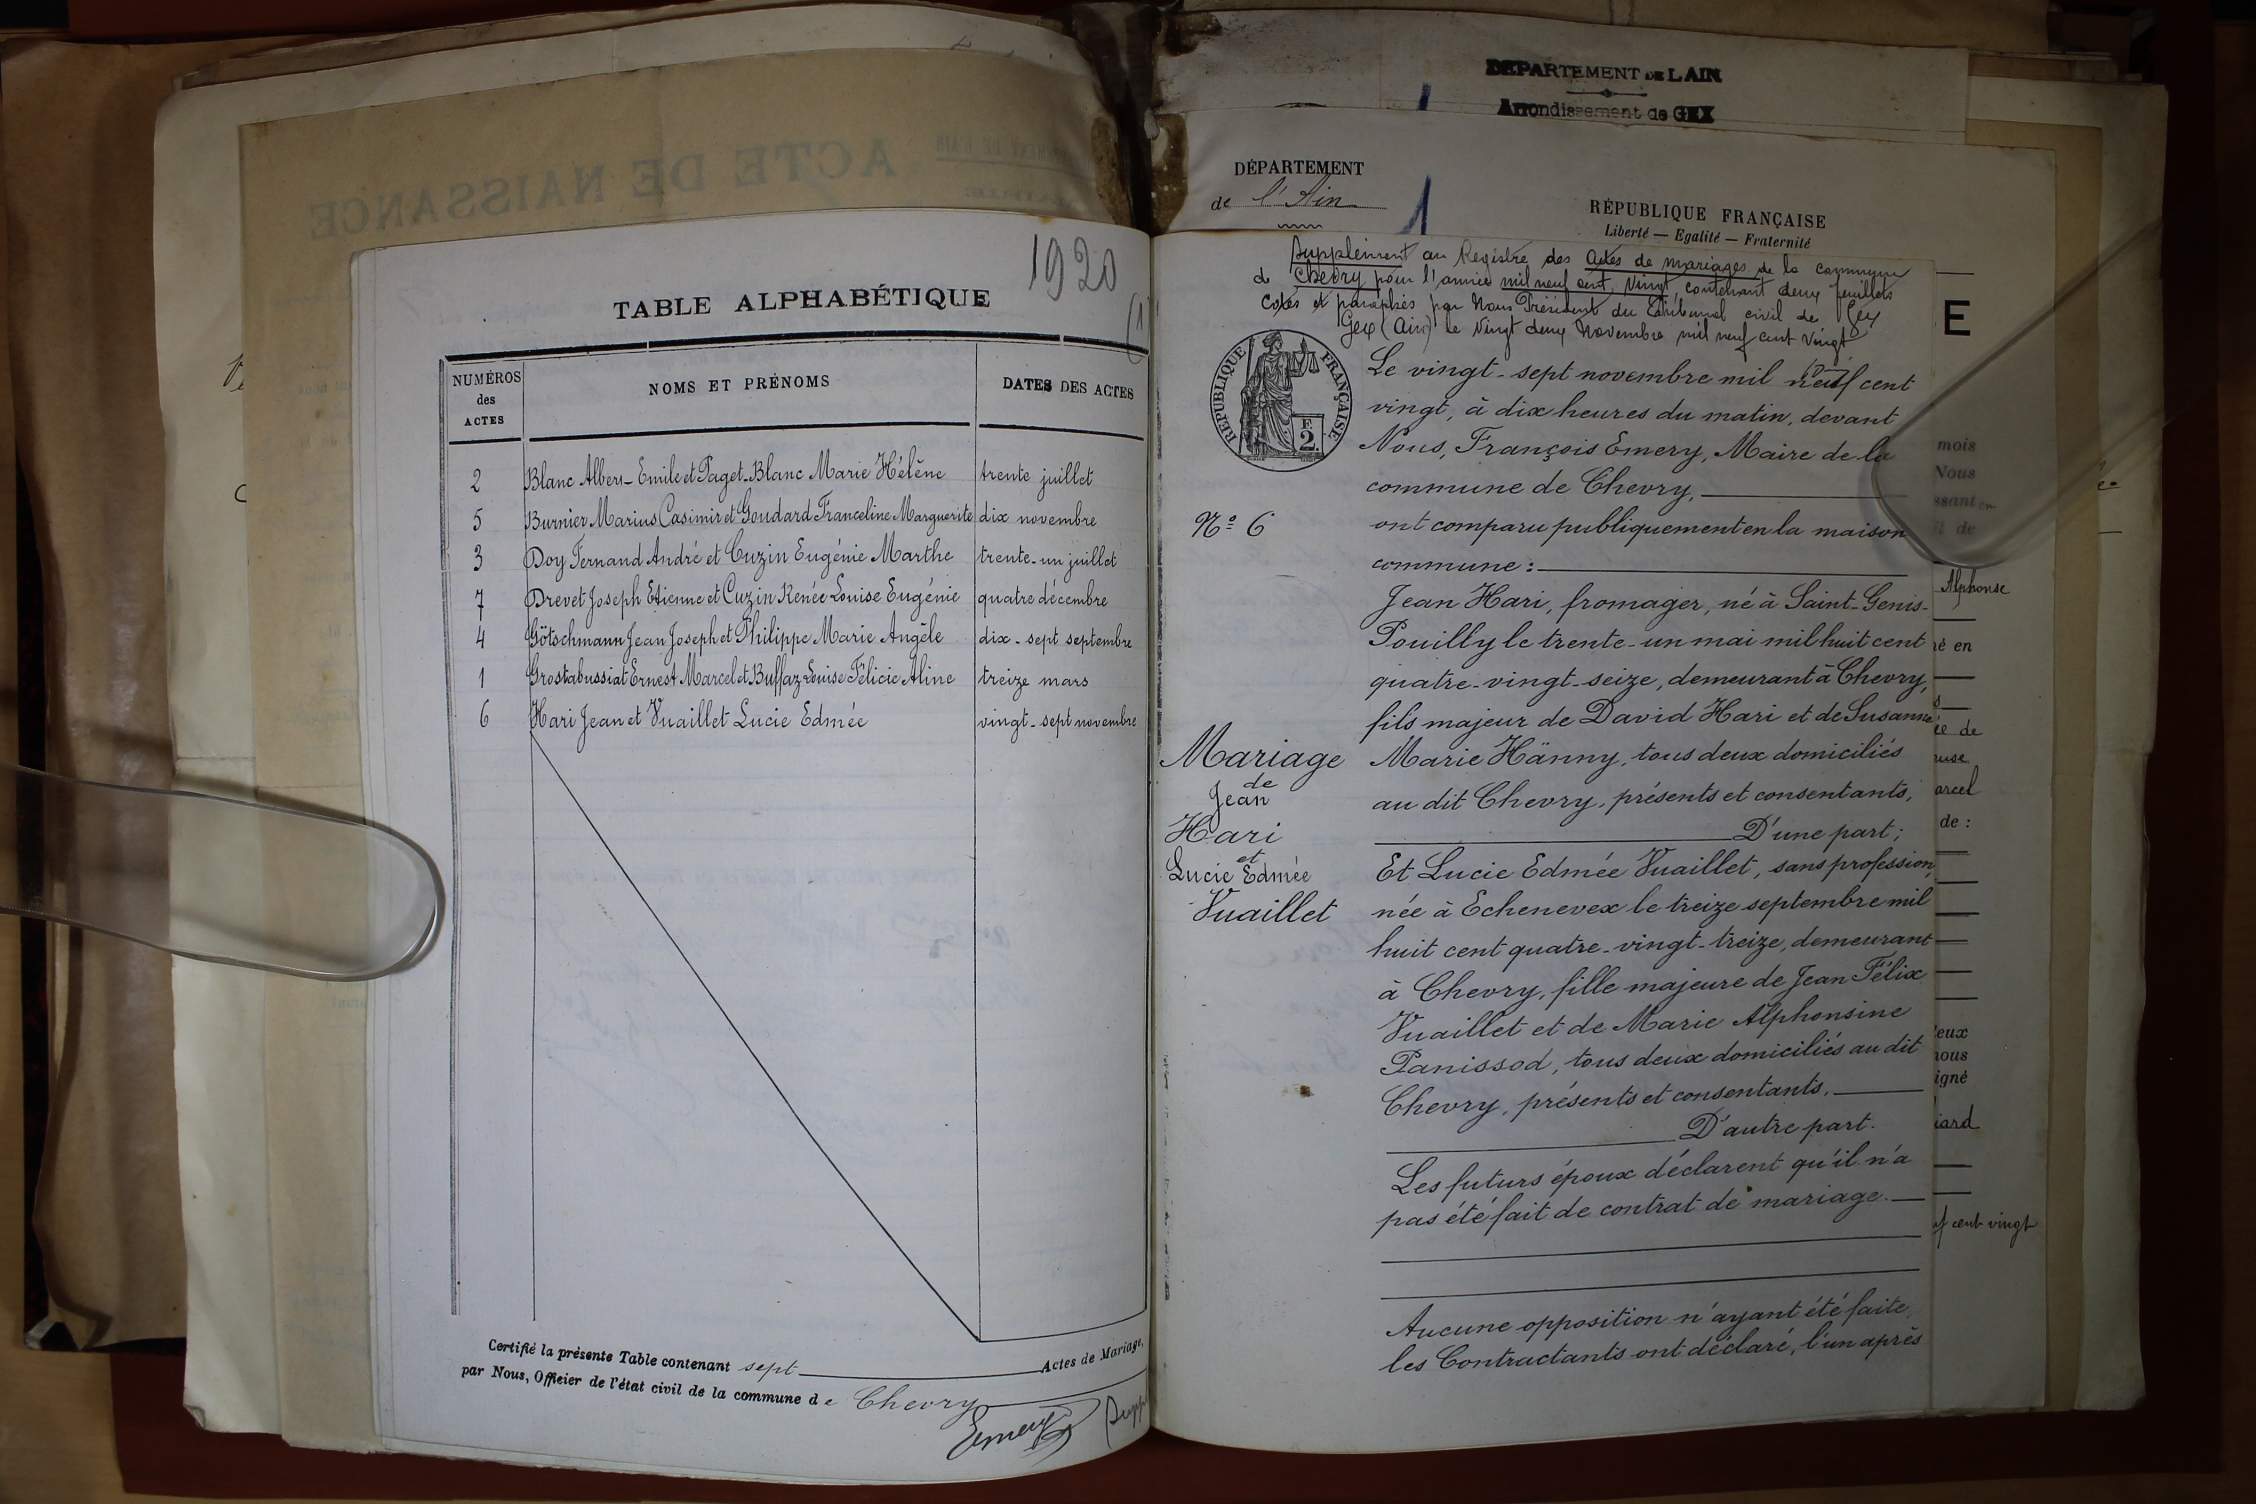 1920
TABLE ALPHABÉTIQUE
NUMÉROS des ACTES
NOMS ET PRÉNOMS
DATES DES ACTES
2 Blanc Albert-Emile et Paget-Blanc Marie Hélène trente juillet
5 Burnier Marius Casimir et Goudard Franceline Marguerite dix novembre
3 Doy Fernand André et Cuzin Eugénie Marthe trente-un juillet
7 Drevet Joseph Etienne et Cuzin Renée Louise Eugénie quatre décembre
4 Götschmann Jean Joseph et Philippe Marie Angèle dix-sept septembre
1 Grostabussiat Ernest Marcel et Buffaz Louise Félicie Aline treize mars
6 Hari Jean et Vuaillet Lucie Edmée vingt-sept novembre
Certifié la présente Table contenant sept Actes de Mariage,
par Nous, Officier de l'état civil de la commune de Chevry
Emery
ACTE DE NAISSANCE
DEPARTEMENT DE L AIN
Arrondissement de GEX
DÉPARTEMENT
de l'Ain
1
RÉPUBLIQUE FRANÇAISE
Liberté — Egalité — Fraternité
Supplément au Registre des actes de mariages de la commune
de Chevry pour l'année mil neuf cent vingt, contenant deux feuillets
cotés et paraphés par Nous Président du Tribunal civil de Gex
Gex (Ain) le vingt deux Novembre mil neuf cent vingt
RÉPUBLIQUE FRANÇAISE
F. 2.
Le vingt-sept novembre mil neuf cent
vingt, à dix heures du matin, devant
Nous, François Emery, Maire de la
commune de Chevry,
N° 6
ont comparu publiquement en la maison
commune :
Jean Hari, fromager, né à Saint-Genis-
Pouilly le trente-un mai mil huit cent
quatre-vingt-seize, demeurant à Chevry,
fils majeur de David Hari et de Susanne
Marie Hänny, tous deux domiciliés
au dit Chevry, présents et consentants,
D'une part ;
Mariage
de
Jean
Hari
et
Lucie Edmée
Vuaillet
Et Lucie Edmée Vuaillet, sans profession,
née à Echenevex le treize septembre mil
huit cent quatre-vingt-treize, demeurant
à Chevry, fille majeure de Jean Félix
Vuaillet et de Marie Alphonsine
Panissod, tous deux domiciliés au dit
Chevry, présents et consentants.
D'autre part.
Les futurs époux déclarent qu'il n'a
pas été fait de contrat de mariage.
Aucune opposition n'ayant été faite,
les Contractants ont déclaré, l'un après
E
mois
Nous
Alphonse
né en
ée de
arcel
de :
eux
nous
igné
cent vingt